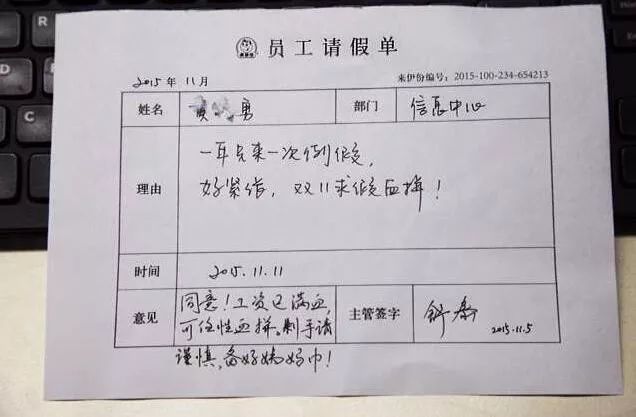 员工请假单
2015年11月 来伊份编号：2015-100-234-654213
姓名 勇 部门 信息中心
一年只来一次例假,
理由
好紧张，双11求假血拼！
时间 2015.11.11
同意！工资已满血,
意见 可任性血拼。剁手请 主管签字 2015.11.5
谨慎,备好姨妈巾！